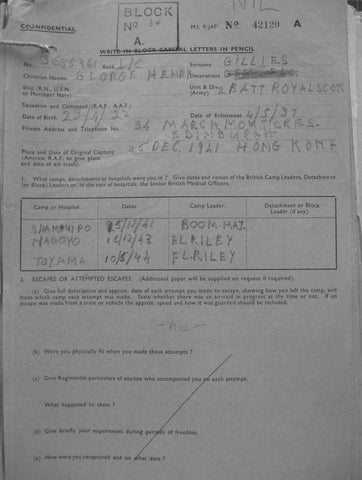 NIL
CONFIDENTIAL
BLOCK
No 34
A.
M.I. 9/JAP No 42120 A
WRITE IN BLOCK CAPITAL LETTERS IN PENCIL
No. 3055361 Rank L/C Surname GILLIES
Christian Names GEORGE HENRY Decorations
Ship (R.N., U.S.N. or Merchant Navy) Unit & Div. (Army) 2 BATT ROYAL SCOTS
Squadron and Command (R.A.F., A.A.F.)
Date of Birth 22/4/22 Date of Enlistment 4/5/37
Private Address and Telephone No. 34 MARCHMONT CRES.
EDINBURGH
Place and Date of Original Capture 25 DEC, 1941 HONG KONG
(Aircrew R.A.F. to give place
and date of air crash).
1. What camps, detachments or hospital were you in? Give dates and names of the British Camp Leaders, Detachment
(or Block) Leaders or, in the case of hospitals, the Senior British Medical Officers.
Camp or Hospital. Dates. Camp Leader. Detachment or Block Leader (if any).
SHAMSUIPO 25/12/41 BOON. MAJ.
NAGOYO 15/12/43 F.L. RILEY
TOYAMA 10/5/44 F.L. RILEY
2. ESCAPES OR ATTEMPTED ESCAPES. (Additional paper will be supplied on request if required).
(a) Give full description and approx. date of each attempt you made to escape, showing how you left the camp, and
from which camp each attempt was made. State whether there was an air-raid in progress at the time or not. If an
escape was made from a train or vehicle the approx. speed and how it was guarded should be included.
- no -
(b) Were you physically fit when you made these attempts ?
(c) Give Regimental particulars of anyone who accompanied you on each attempt.
What happened to them ?
(d) Give briefly your experiences during periods of freedom.
(e) How were you recaptured and on what date ?